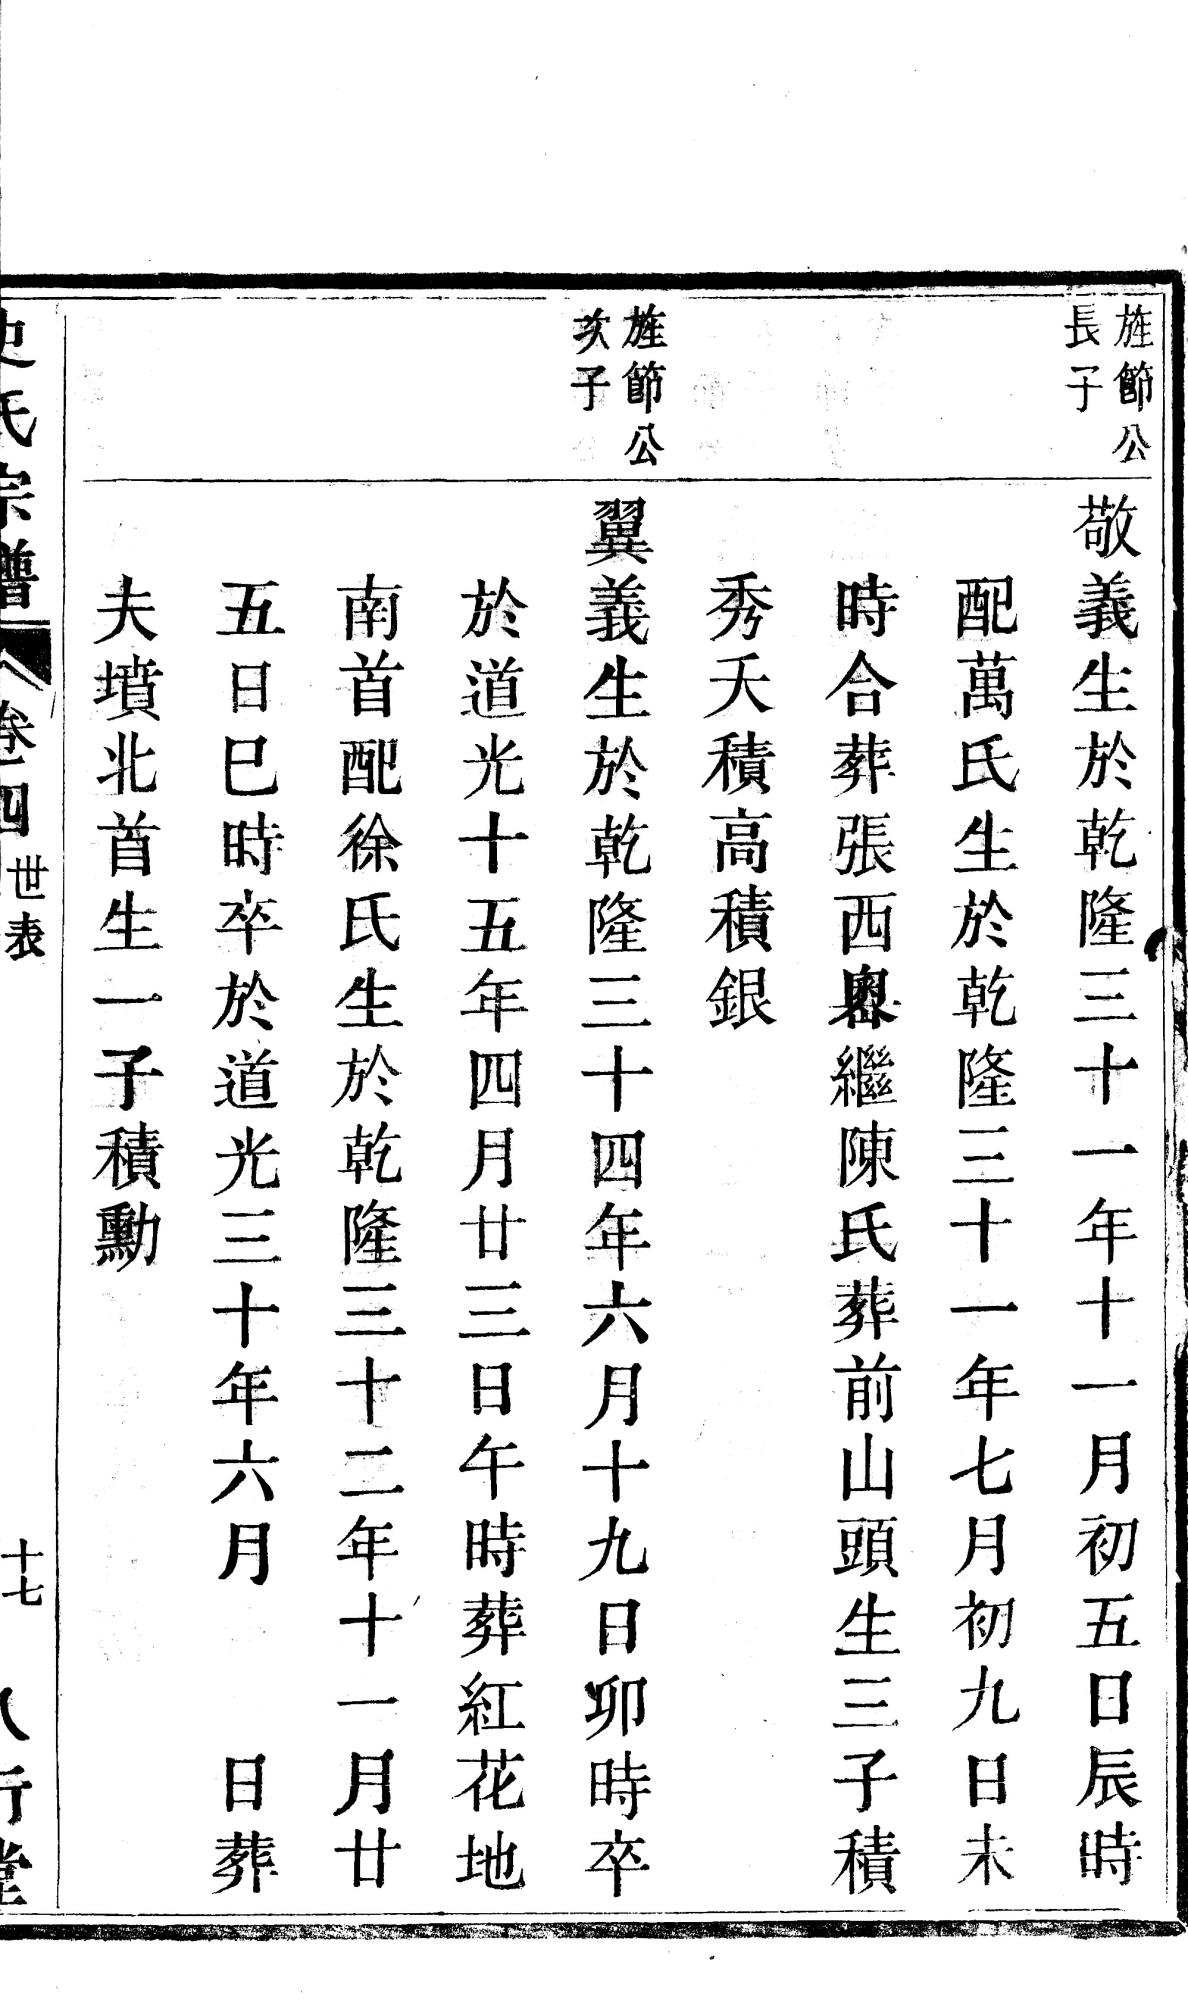 旌節公
長子
敬義生於乾隆三十一年十一月初五日辰時
配萬氏生於乾隆三十一年七月初九日未
時合葬張西嶴繼陳氏葬前山頭生三子積
秀夭積高積銀
旌節公
次子
翼義生於乾隆三十四年六月十九日卯時卒
於道光十五年四月廿三日午時葬紅花地
南首配徐氏生於乾隆三十二年十一月廿
五日巳時卒於道光三十年六月 日葬
夫墳北首生一子積勳
史氏宗譜 卷四 世表 十七 八行堂